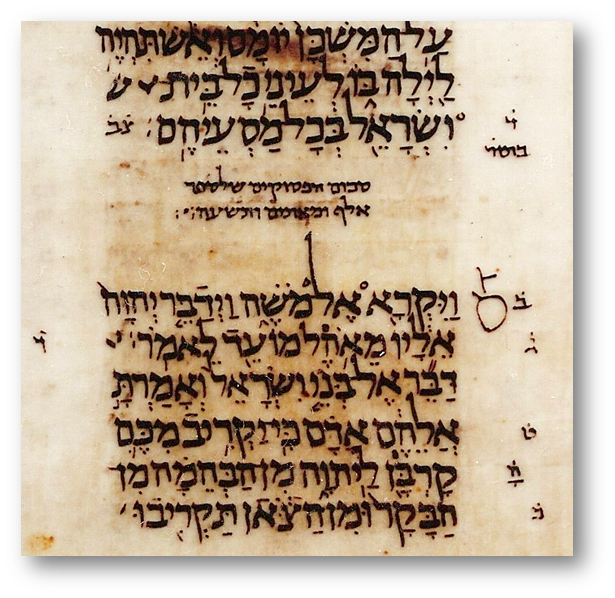 עַל הַמִּשְׁכָּן יוֹמָם וְאֵשׁ תִּהְיֶה
לַיְלָה בּוֹ לְעֵינֵי כָל בֵּית
יִשְׂרָאֵל בְּכָל מַסְעֵיהֶם׃
סכום הפסוקים שלספר
אלף ומאתים ותשעה׃
וַיִּקְרָא אֶל מֹשֶׁה וַיְדַבֵּר יְהוָה
ב
אֵלָיו מֵאֹהֶל מוֹעֵד לֵאמֹר׃
ג
דַּבֵּר אֶל בְּנֵי יִשְׂרָאֵל וְאָמַרְתָּ
אֲלֵהֶם אָדָם כִּי יַקְרִיב מִכֶּם
ט
קָרְבָּן לַיהוָה מִן הַבְּהֵמָה מִן
הַבָּקָר וּמִן הַצֹּאן תַּקְרִיבוּ